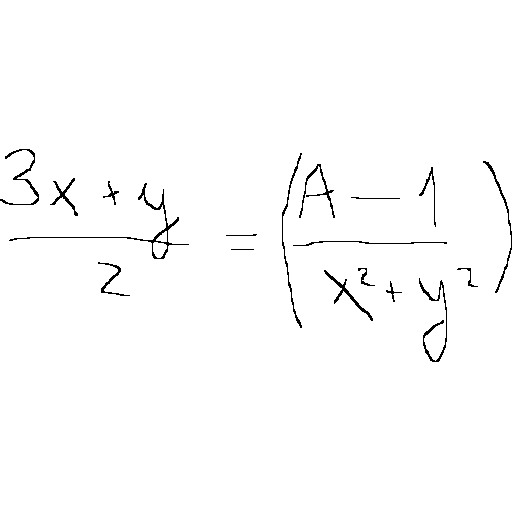 \frac{3x+y}{2} = \left(\frac{A-1}{x^2+y^2}\right)